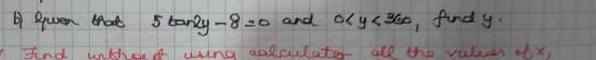 b) Given that 5 tan2y - 8 = 0 and 0 < y < 360, find y.
Find without using calculator all the values of x,